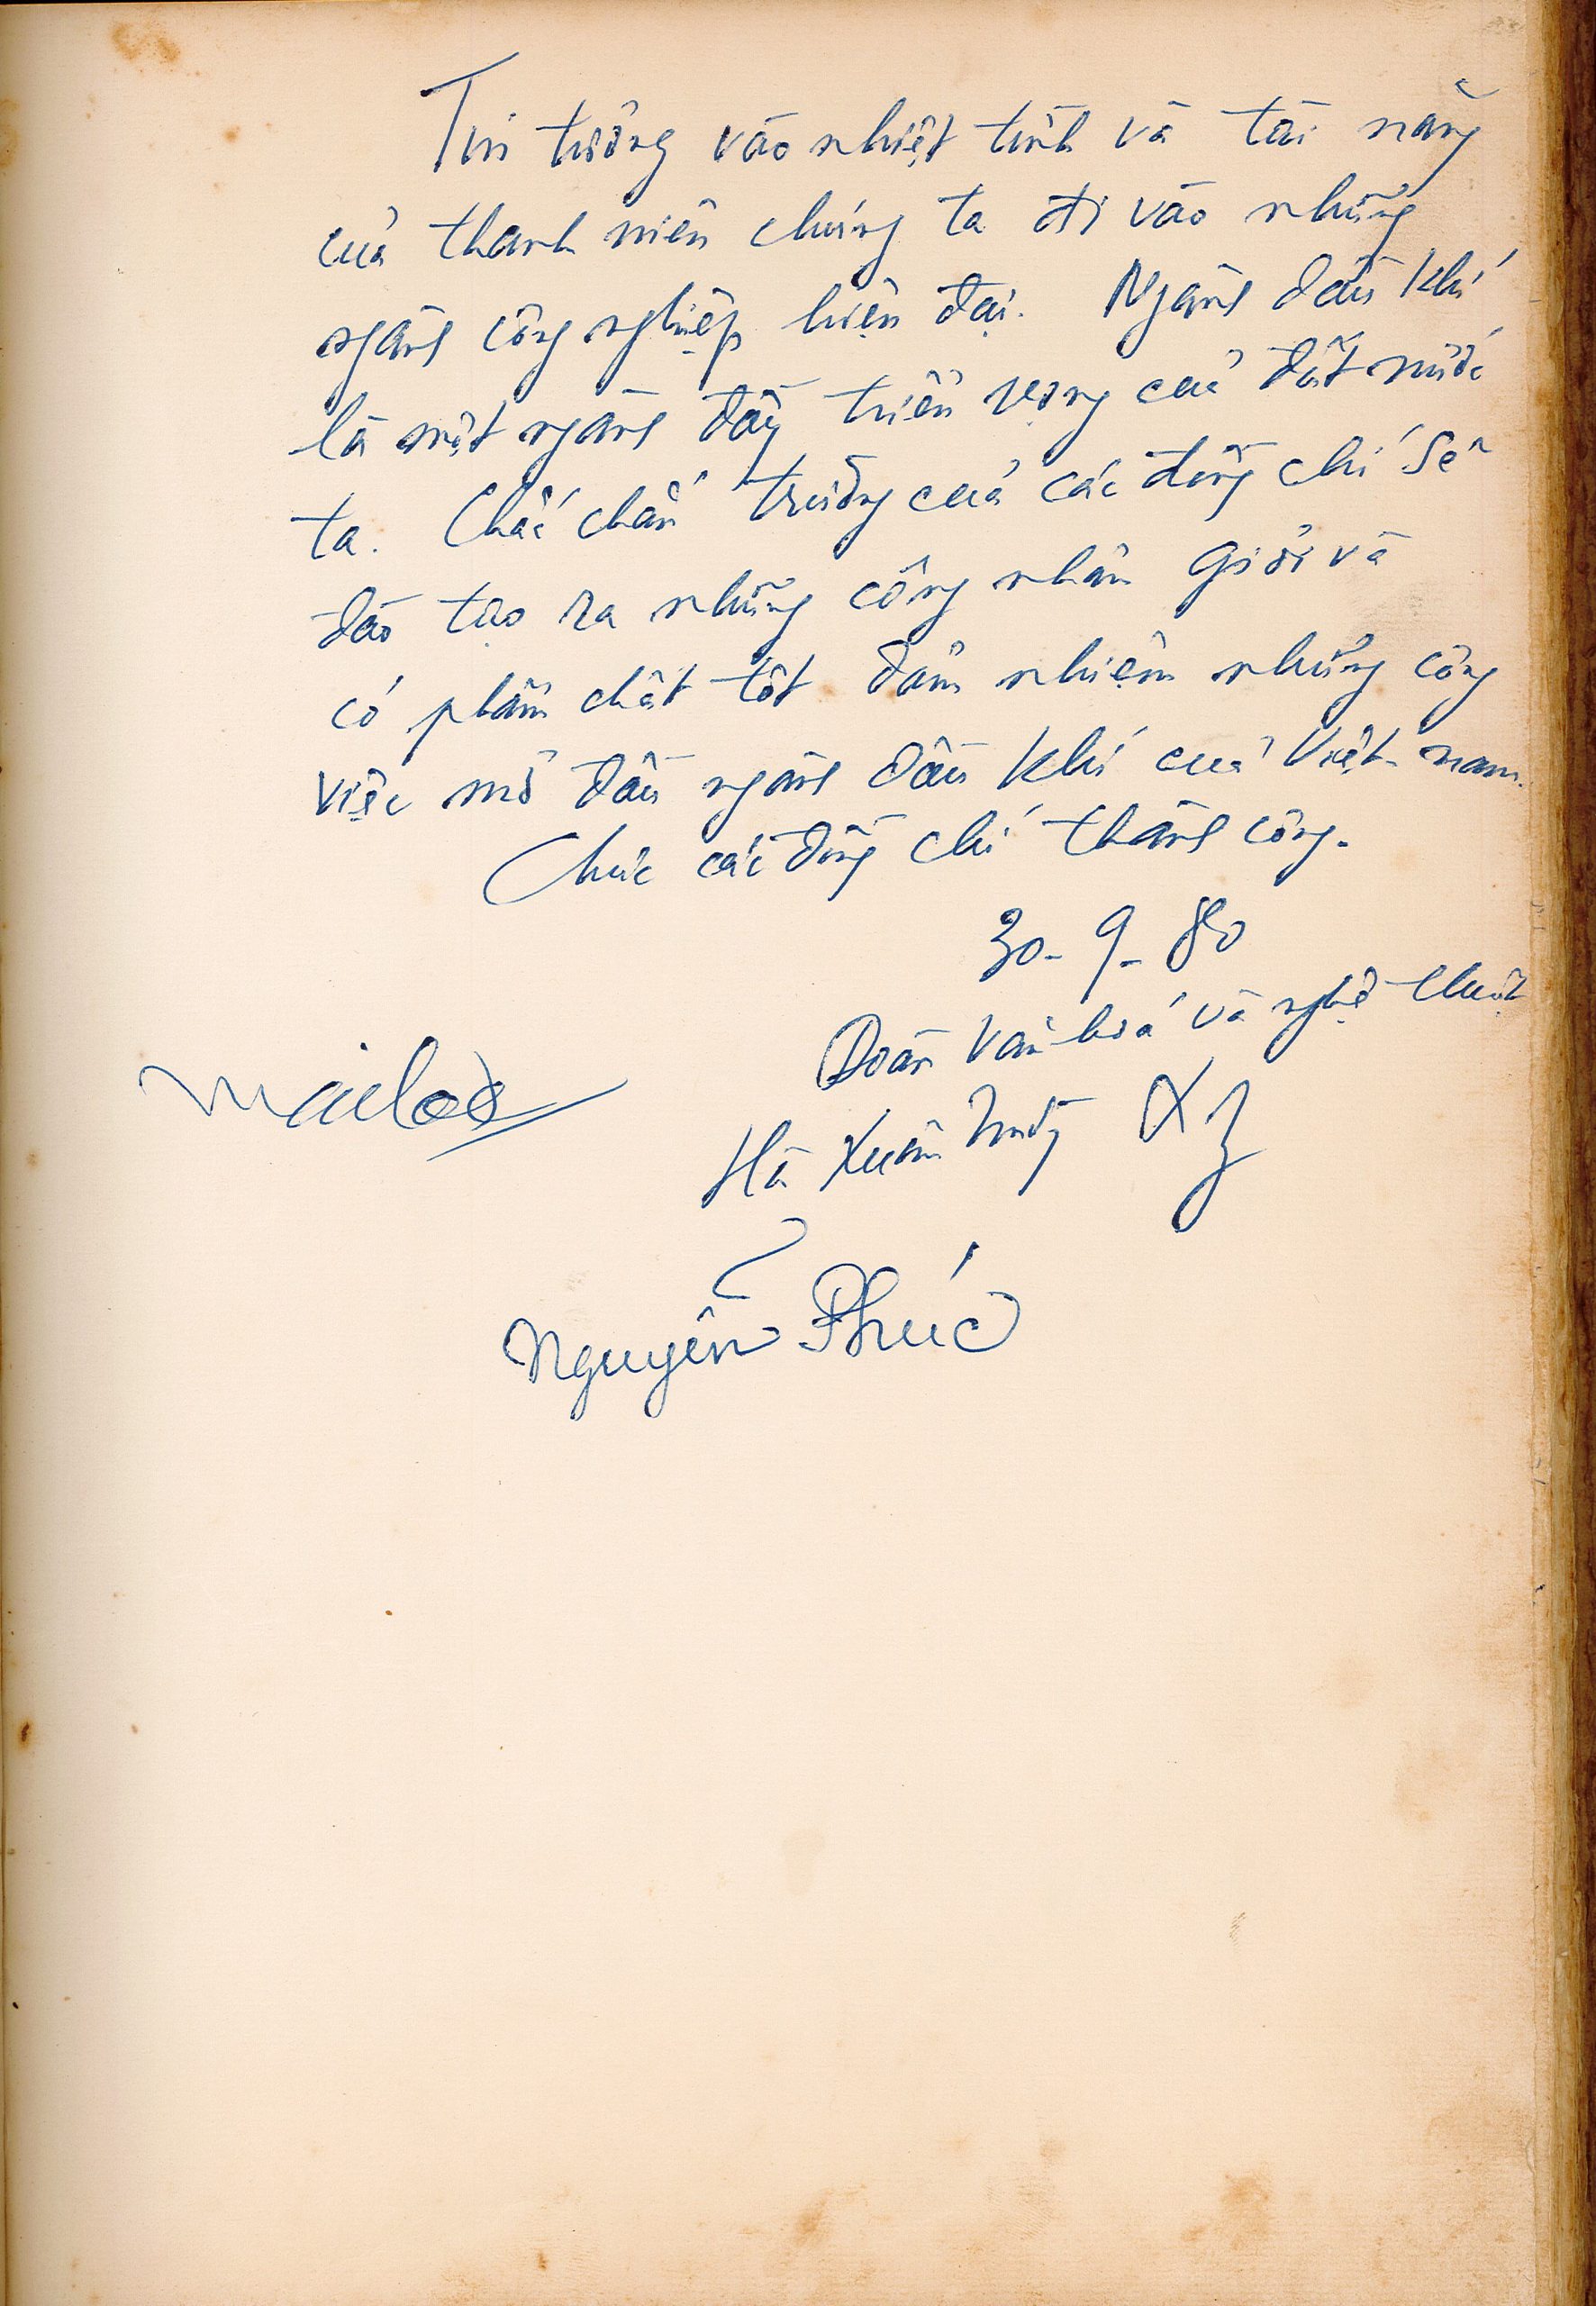 Tin tưởng vào nhiệt tình và tài năng
của thanh niên chúng ta đi vào những
ngành công nghiệp hiện đại. Ngành dầu khí
là một ngành đầy triển vọng của đất nước
ta. Chắc chắn trường của các đồng chí sẽ
đào tạo ra những công nhân giỏi và
có phẩm chất tốt đảm nhiệm những công
việc mở đầu ngành dầu khí của Việt-nam.
Chúc các đồng chí thành công.
30-9-80
Đoàn Văn hoá và nghệ thuật
Hà Xuân Trường
Nguyễn Phúc